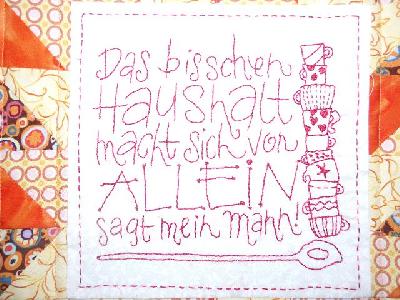 Das bisschen
Haushalt
macht sich von
ALLEIN
sagt mein Mann!